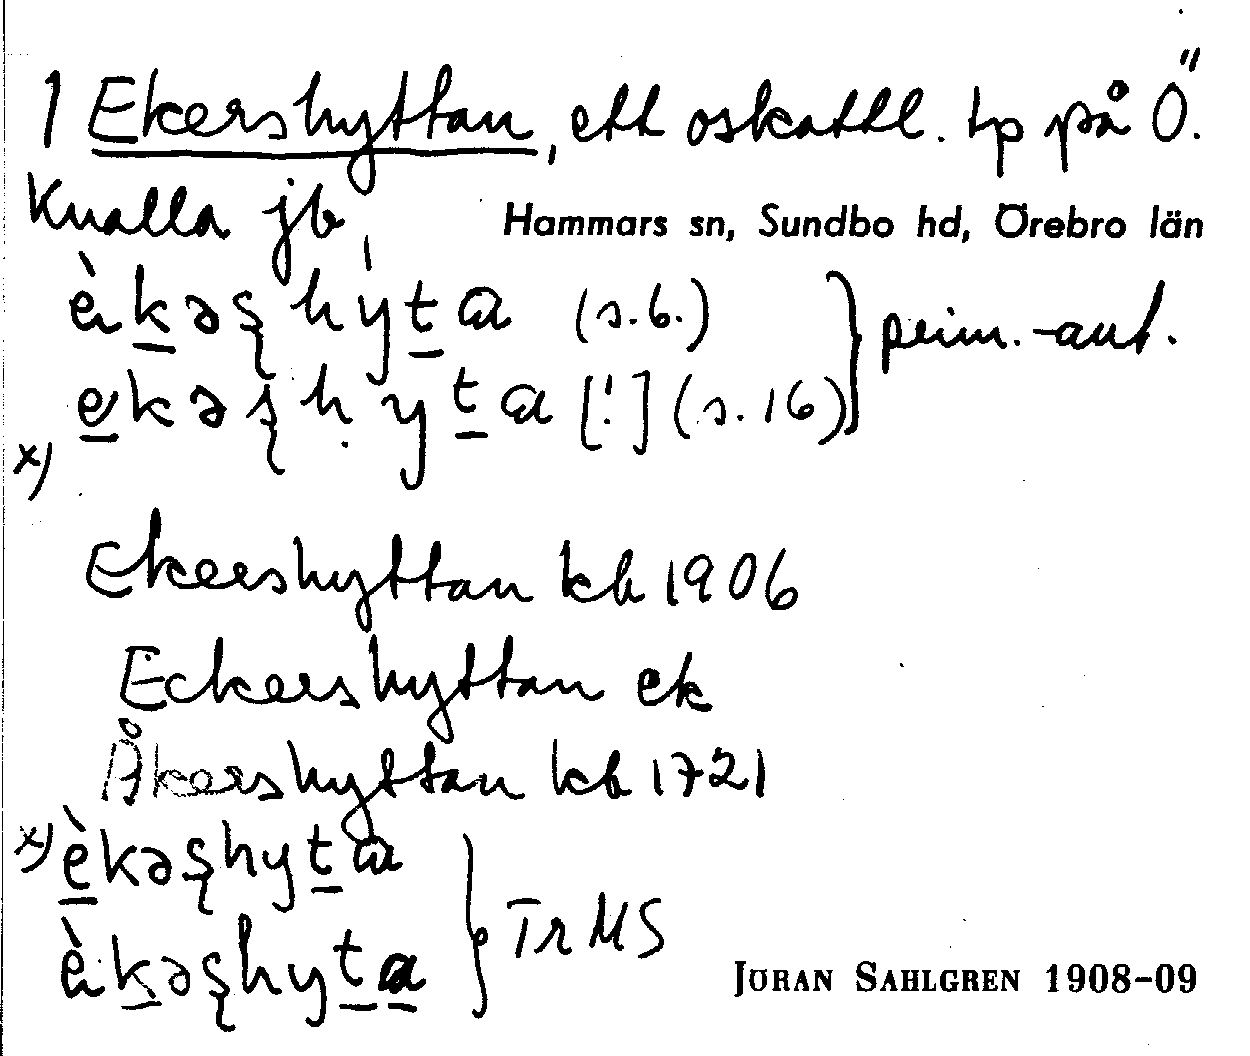 1 Ekershyttan, ett oskattl. tp på Ö.
Knalla jb,
Hammars sn, Sundbo hd, Örebro län
è̀kəʂhýta (s.6.)
ekəʂhyta [!] (s.16) } prim.-aut.
x)
Ekershyttan kb 1906
Eckershyttan ek
Åkershyttan kb 1721
x) èkəʂhyta
èkəʂhyta } Tr MS
JÖRAN SAHLGREN 1908-09